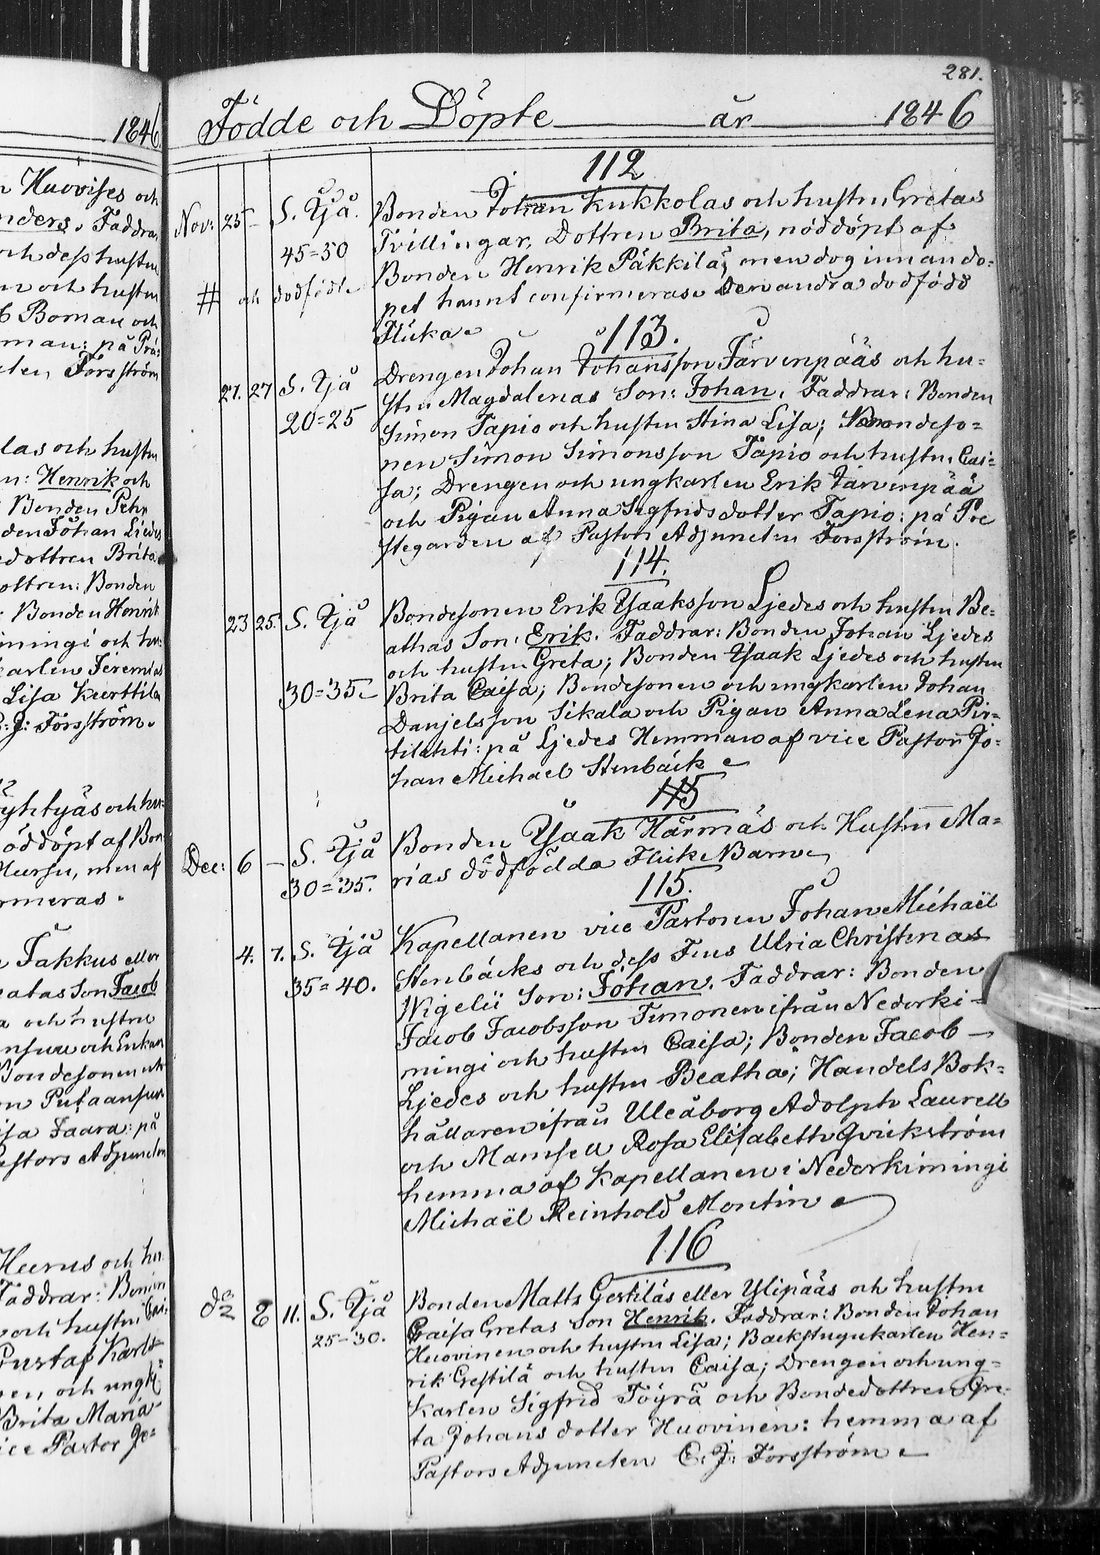 281.
1846.
Födde och Döpte år 1846
n Huovises och
nders, Faddra
och dess hustru
en och hustru
Boman och
man: på Prä-
ten, Forsström
las och hustru
n: Henrik och
Bonden Pehr
den Johan Ljedes
edottren Brita.
ottren: Bonden
Bonden Henrik
iningi och hu-
karlen Jeremias
Lisa Kerttila
C: J: Forsström.
öhtyäs och hu-
öddöpt af Bon
Hursu, men af
rmeras.
Takkus eller
eatas Son Jacob
a och hustru
Bondesonen och
n Putaansuu
isa Jaara: på
astors Adjuncten
Heurus och hu-
Faddrar: Bonden
och hustru Cai-
Gustaf Karls-
nen, och ungk-
Brita Maria
ice Pastor Jo-
112
Nov: 25 – S. Ijå. Bonden Johan Kukkolas och hustru Gretas
45=50 Tvillingar, Dottren Brita, nöddöpt af
Bonden Henrik Päkkilä, men dog innan do-
# och dödfödt pet hunnit confirmeras. Den andra dödföd
Flicka
113.
21. 27 S. Ijå Drengen Johan Johansson Järvenpääs och hu-
20=25 stru Magdalenas Son: Johan. Faddrar: Bonden
Simon Tapio och hustru Stina Lisa; Bondeso-
nen Simon Simonsson Tapio och hustru Cai-
sa; Drengen och ungkarlen Erik Järvenpää
och Pigan Anna Sigfridsdotter Tapio: på Pre
stegarden af Pastors Adjuncten Forsström.
114.
23 25. S. Ijå Bondesonen Erik Ysaaksson Ljedes och hustru Be-
athas Son: Erik. Faddrar: Bonden Johan Ljedes
och hustru Greta; Bonden Ysaak Ljedes och hustru
30=35. Brita Caisa; Bondesonen och ungkarlen Johan
Danjelsson Sikala och Pigan Anna Lena Pir-
tilahti: på Ljedes Hemman af vice Pastorn Jo-
han Michael Stenbäck
115
Dec: 6 – S. Ijå Bonden Ysaak Härmäs och Hustru Ma-
30=35. rias dödfödda Flicke Barn
115.
4. 7. S. Ijå Kapellanen vice Pastoren Johan Michaël
35=40. Stenbäcks och dess Frus Ulria Christinas
Wigelii Son: Johan. Faddrar: Bonden
Jacob Jacobsson Timonen ifrån Nederki-
mingi och hustru Caisa; Bonden Jacob
Ljedes och hustru Beatha; Handels Bok-
hållaren ifrån Uleåborg Adolph Laurell
och Mamsell Rosa Elisabeth Qvickström
hemma af Kapellanen i Nederkimingi
Michaël Reinhold Montin
116
8 11. S. Ijå Bonden Matts Gestiläs eller Ylipääs och hustru
25=30. Caisa Gretas Son Henrik. Faddrar: Bonden Johan
Huovinen och hustru Lisa; Backstugukarlen Hen-
rik Gestilä och hustru Caisa; Drengen och ung-
karlen Sigfrid Töyrä och Bondedottren Gre-
ta Johansdotter Huovinen: hemma af
Pastors Adjuncten C: J: Forsström